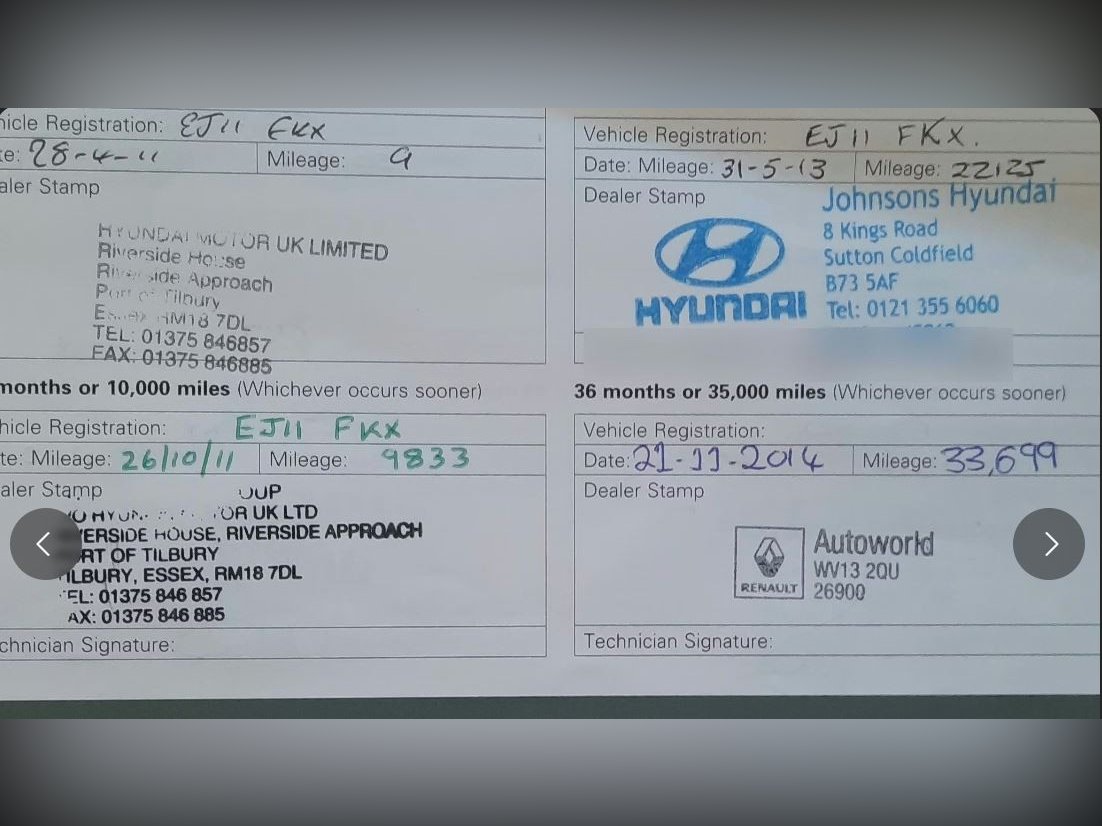 hicle Registration: EJ11 FKX
te: 28-4-11 Mileage: 9
aler Stamp
HYUNDAI MOTOR UK LIMITED
Riverside House
Riverside Approach
Port of Tilbury
Essex RM18 7DL
TEL: 01375 846857
FAX: 01375 846885
months or 10,000 miles (Whichever occurs sooner)
hicle Registration: EJ11 FKX
te: Mileage: 26/10/11 Mileage: 9833
aler Stamp
OUP
OR UK LTD
ERSIDE HOUSE, RIVERSIDE APPROACH
RT OF TILBURY
ILBURY, ESSEX, RM18 7DL
EL: 01375 846 857
AX: 01375 846 885
chnician Signature:
Vehicle Registration: EJ11 FKX.
Date: Mileage: 31-5-13 Mileage: 22125
Dealer Stamp
Johnsons Hyundai
8 Kings Road
Sutton Coldfield
B73 5AF
HYUNDAI Tel: 0121 355 6060
36 months or 35,000 miles (Whichever occurs sooner)
Vehicle Registration:
Date: 21-11-2014 Mileage: 33,699
Dealer Stamp
Autoworld
WV13 2QU
RENAULT 26900
Technician Signature: